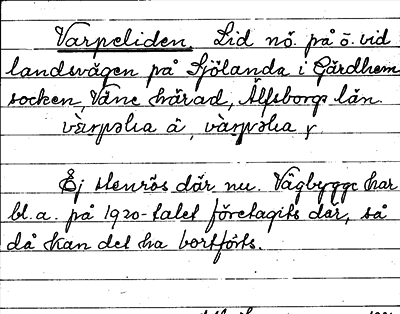 Varpeliden. Lid nö. på ö. vid
landsvägen på Sjölanda i Gärdhem
socken, Väne härad, Älfsborgs län.
Ej stenrös där nu. Vägbygge har
bl.a. på 1920-talet företagits där, så
då kan det ha bortförts.